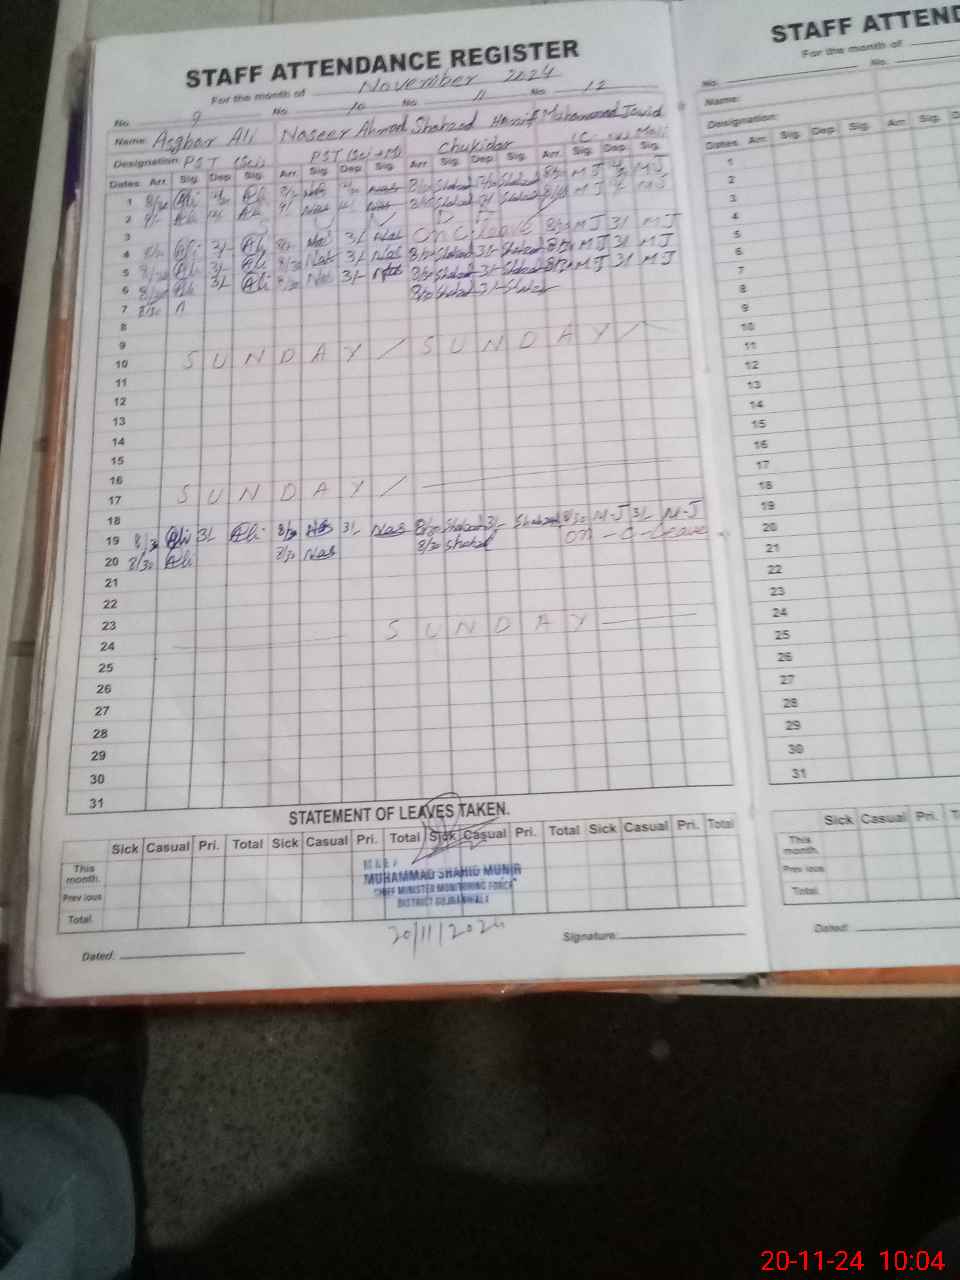 STAFF ATTENDANCE REGISTER
For the month of November 2024
No. 9 No. 10 No. 11 No. 12
Name: Asghar Ali Naseer Ahmad Shahzad Hanif Muhammad Javid
Designation: PST (Sci) PST (Sci+M) Chukidar
Dates Arr. Sig. Dep. Sig. Arr. Sig. Dep. Sig. Arr. Sig. Dep. Sig. Arr. Sig. Dep. Sig.
1 8/30 Ali Ali Nas Nas Shahzad Shahzad 8/30 M J M J
2 Ali Ali Nas Nas Shahzad Shahzad M J M J
3
4 Ali 3/- Ali Nas 3/- Nas On C. leave 8/30 M J 3/- M J
5 8/30 Ali 3/- Ali 8/30 Nas 3/- Nas 8/30 Shahzad 3/- Shahzad 8/30 M J 3/- M J
6 8/30 Ali 3/- Ali 8/30 Nas 3/- Nas 8/30 Shahzad 3/- Shahzad 8/30 M J 3/- M J
7 8/30 A 8/30 Shahzad 3/- Shahzad
8
9
10 SUNDAY / SUNDAY /
11
12
13
14
15
16
17 SUNDAY /
18
19 8/30 Ali 3/- Ali 8/30 Nas 3/- Nas 8/30 Shahzad 3/- Shahzad 8/30 M-J 3/- M-J
20 8/30 Ali 8/30 Nas 8/30 Shahzad On - C - Leave
21
22
23
24 SUNDAY
25
26
27
28
29
30
31
STATEMENT OF LEAVES TAKEN.
Sick Casual Pri. Total Sick Casual Pri. Total Sick Casual Pri. Total Sick Casual Pri. Total
This month.
Previous
Total
MUHAMMAD SHAHID MUNIR
CHIEF MINISTER MONITORING FORCE
DISTRICT GUJRANWALA
20/11/2024
Dated: Signature:
STAFF ATTEND
For the month of
No. No.
Name:
Designation:
Dates Arr. Sig. Dep. Sig. Arr. Sig. Dep.
1
2
3
4
5
6
7
8
9
10
11
12
13
14
15
16
17
18
19
20
21
22
23
24
25
26
27
28
29
30
31
Sick Casual Pri. T
This month.
Previous
Total
Dated:
20-11-24 10:04